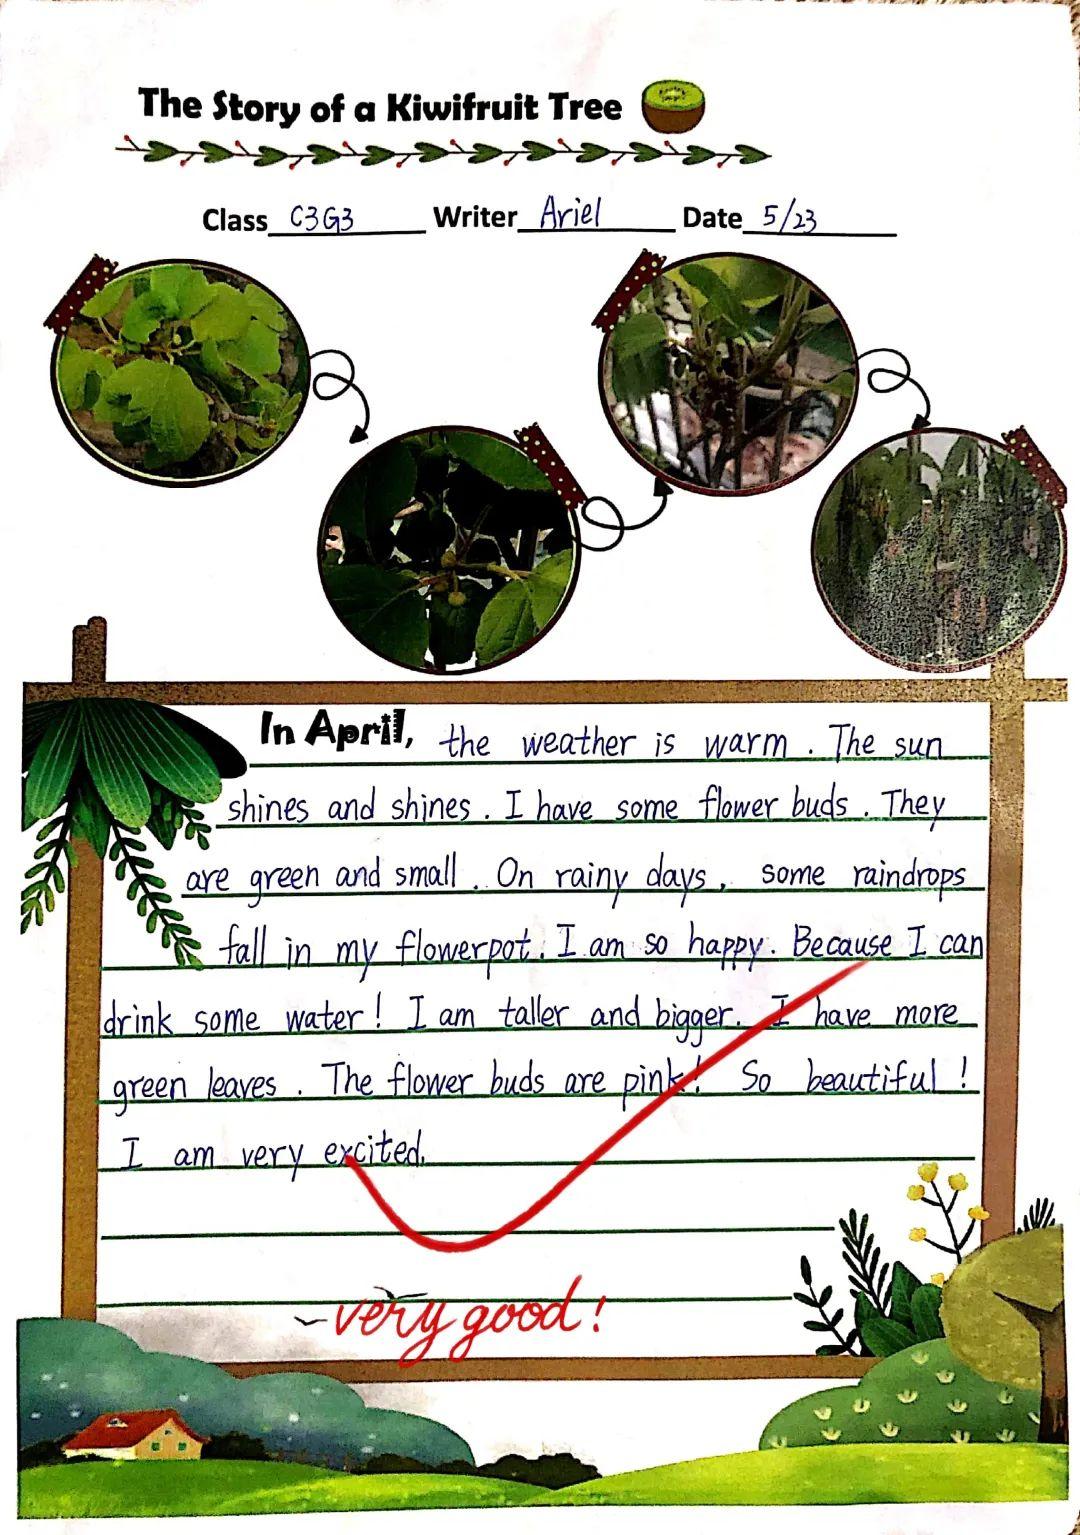 The Story of a Kiwifruit Tree
Class C3G3 Writer Ariel Date 5/23
In April, the weather is warm. The sun
shines and shines. I have some flower buds. They
are green and small. On rainy days, some raindrops
fall in my flowerpot. I am so happy. Because I can
drink some water! I am taller and bigger. I have more
green leaves. The flower buds are pink! So beautiful!
I am very excited.
very good!